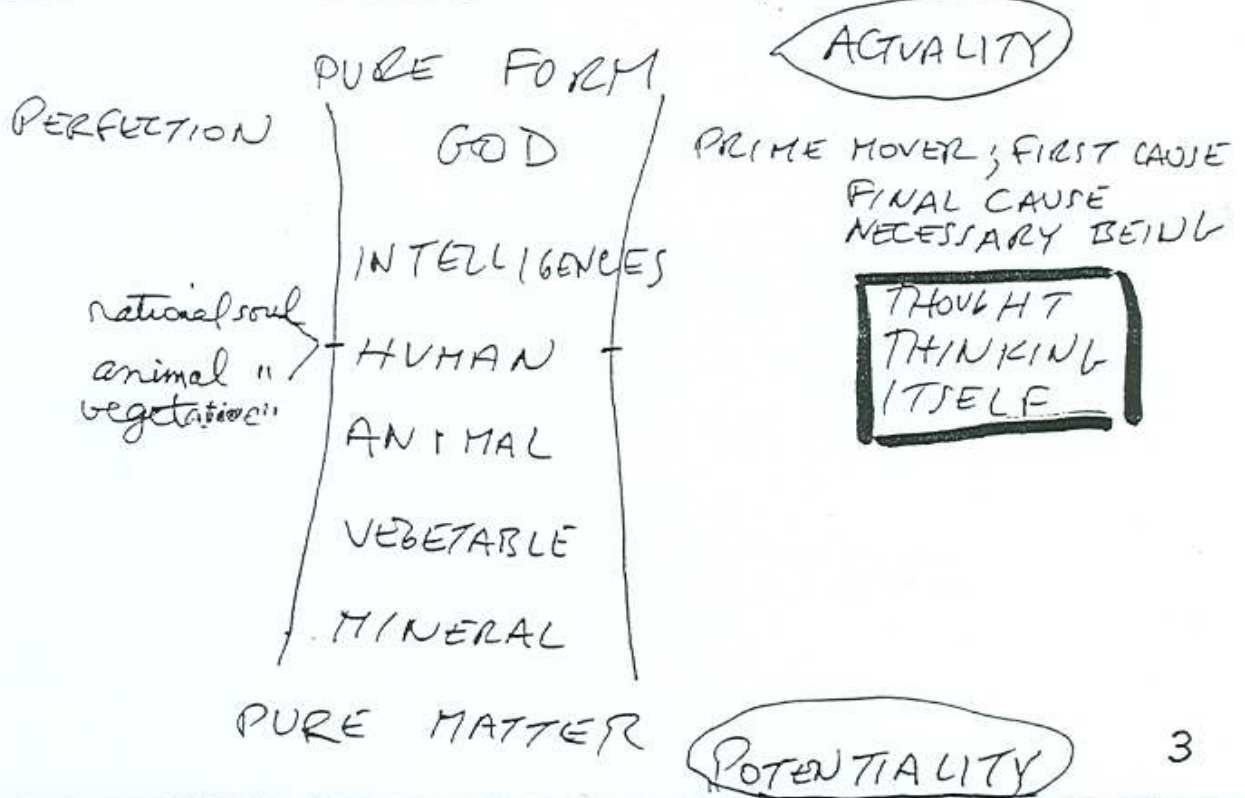 PURE FORM
ACTUALITY
PERFECTION
GOD
PRIME MOVER; FIRST CAUSE
FINAL CAUSE
NECESSARY BEING
INTELLIGENCES
THOUGHT
THINKING
ITSELF
rational soul
animal "
vegetative "
HUMAN
ANIMAL
VEGETABLE
MINERAL
PURE MATTER
POTENTIALITY
3